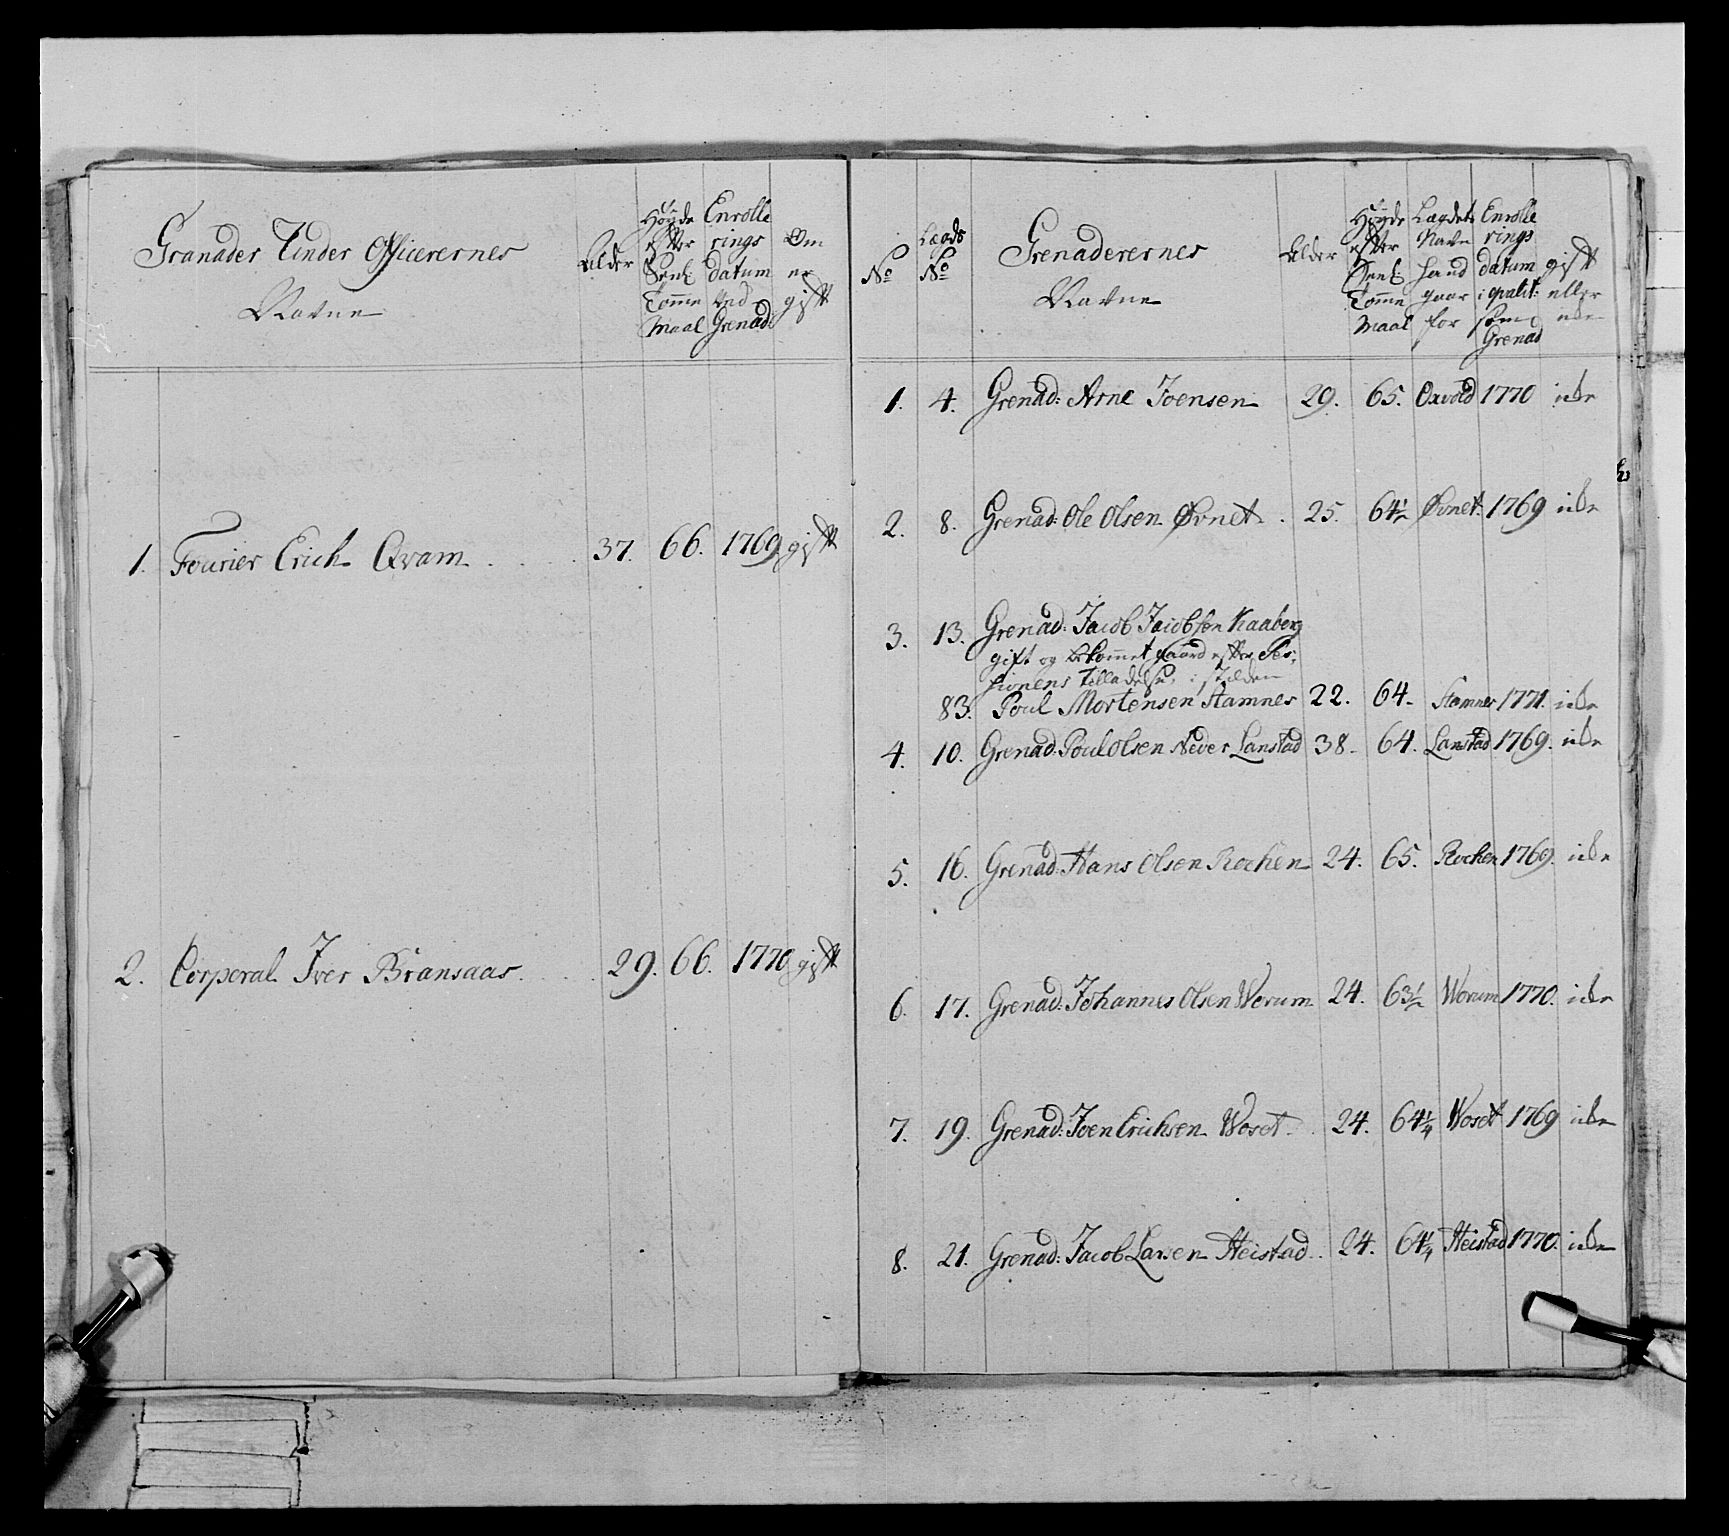 Granader Under Officerernes
Navne
Alder
Høyde
efter
Tomme
Maal
Enrolle
rings
datum
ved
Grenad:
Om
er
gift
1. Fourier Erich Qvam 37. 66. 1769. gift
2. Corperal Iver Bransaas 29. 66. 1770 gift
No
Lægds
No
Grenaderernes
Navne
Alder
Høyde
efter
Tomme
Maal
Lægdets
Navn
hand
gaar
for
Enrolle
rings
datum
i qvalit:
som
Grenad
gift
eller
1. 4. Grenad: Arne Joensen 29. 65. Oxvold 1770
2. 8. Grenad: Ole Olsen Øvnet. 25. 64½ Øvnet. 1769
3. 13. Grenad: Jacob Jacobsen Kaaberg
gift og bekommet gaard efter Ses:
sionens Tilladelse, i stæden
83. Poul Mortensen Stamnes 22. 64. Stamnes 1771.
4. 10. Grenad. Poul Olsen Neder Lanstad 38. 64. Lanstad 1769.
5. 16. Grenad. Hans Olsen Rochen 24. 65. Rochen 1769.
6. 17. Grenad: Johannes Olsen Worum 24. 63½ Worum 1770.
7. 19. Grenad: Joen Erichsen Woset 24. 64¼ Woset 1769
8. 21. Grenad: Jacob Larsen Heistad 24. 64¼ Heistad 1770.